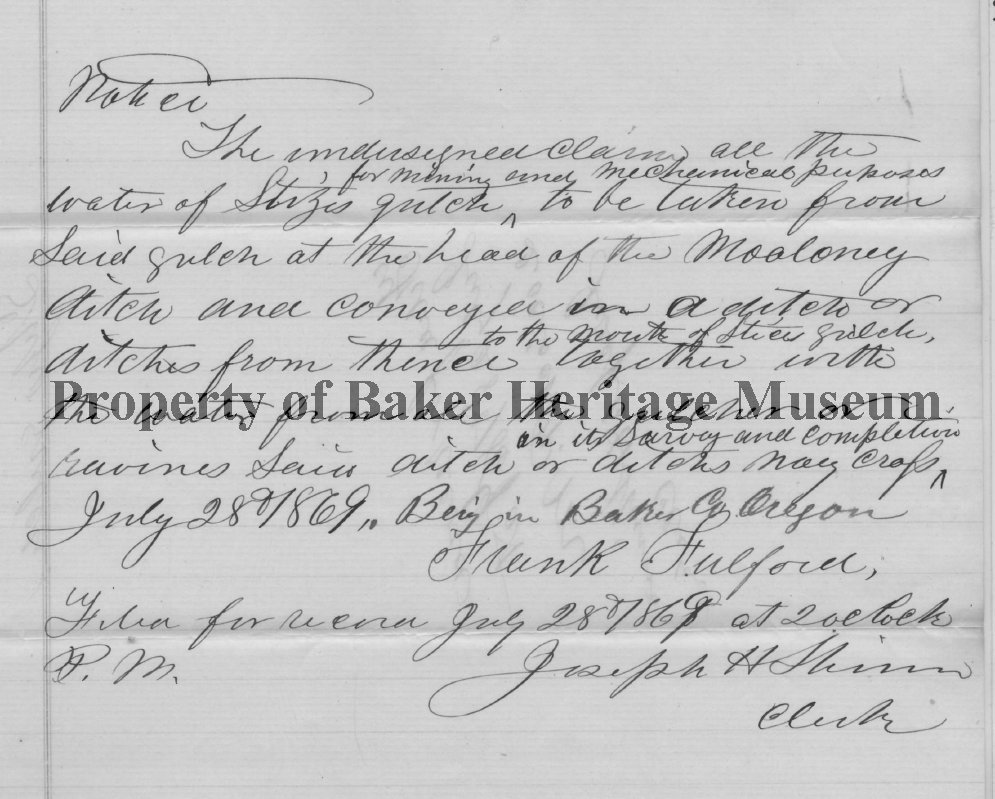 Notice
The undersigned claims all the
for mining and mechanical puposes
water of Stizes gulch ^ to be taken from
Said gulch at the head of the Mooloney
ditch and conveyed in a ditch or
to the mouth of Stices gulch,
ditches from thence together with
Property of Baker Heritage Museum
the water from all the gulches or
in its Survey and completion
ravines Said ditch or ditchs may cross ^
July 28d 1869,, Being in Baker Co Oregon
Frank Fulford,
Filed for record July 28d 1869 at 2 oclock
P. M. Joseph H Shinn
Clerk